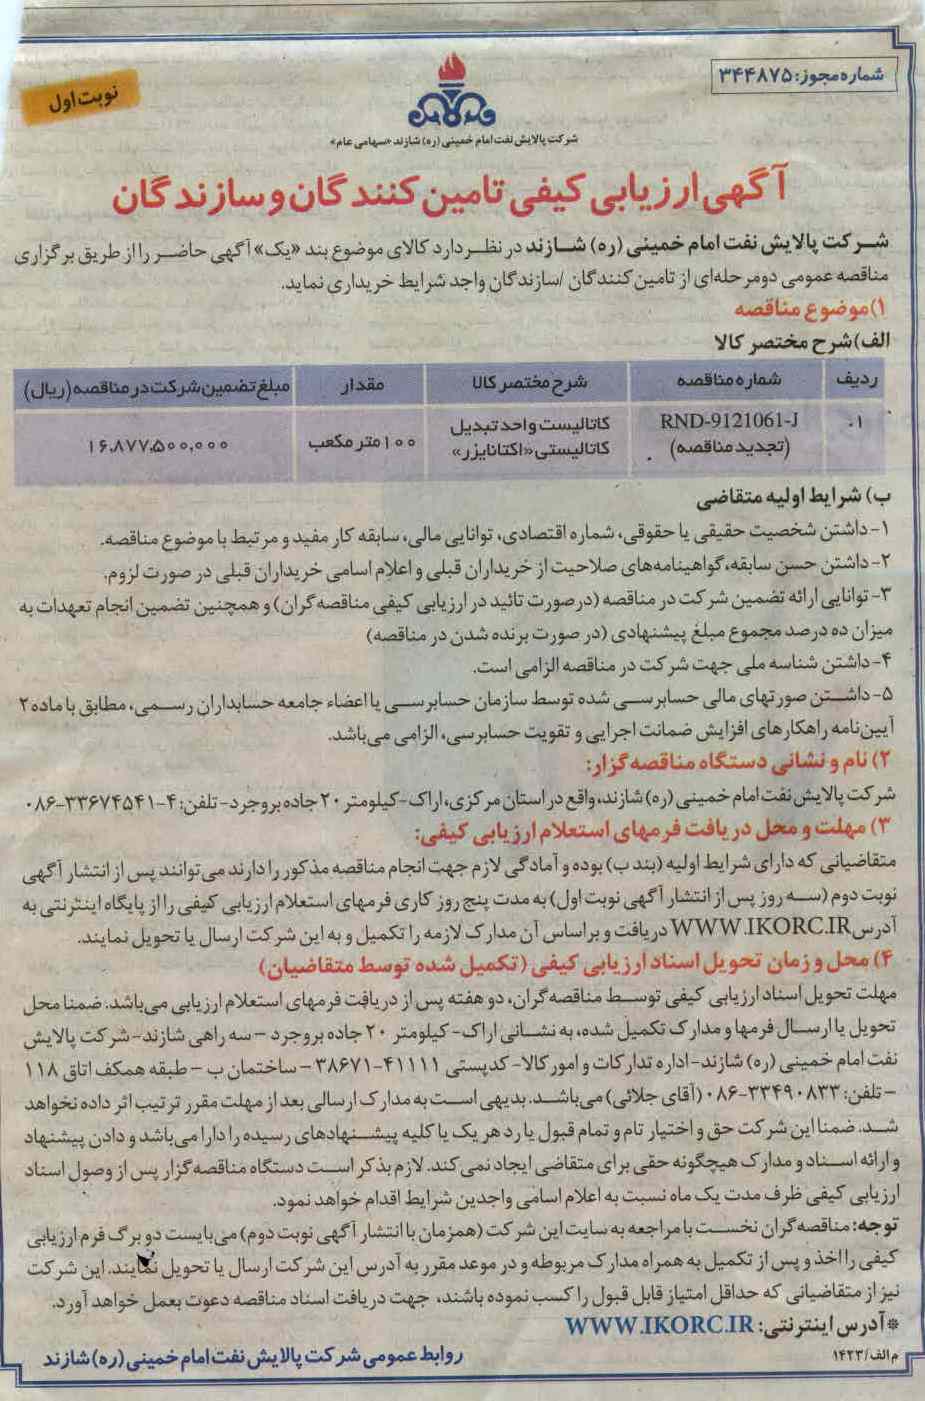 شماره مجوز: ۳۴۴۸۷۵
نوبت اول
شرکت پالایش نفت امام خمینی (ره) شازند «سهامی عام»
آگهی ارزیابی کیفی تامین کنندگان و سازندگان
شرکت پالایش نفت امام خمینی (ره) شازند در نظر دارد کالای موضوع بند «یک» آگهی حاضر را از طریق برگزاری
مناقصه عمومی دو مرحله‌ای از تامین کنندگان /سازندگان واجد شرایط خریداری نماید.
۱) موضوع مناقصه
الف) شرح مختصر کالا
ردیف شماره مناقصه شرح مختصر کالا مقدار مبلغ تضمین شرکت در مناقصه (ریال)
۰۱ RND-9121061-J کاتالیست واحد تبدیل ۱۰۰ متر مکعب ۱۶،۸۷۷،۵۰۰،۰۰۰
(تجدید مناقصه) کاتالیستی «اکتانایزر»
ب) شرایط اولیه متقاضی
۱- داشتن شخصیت حقیقی یا حقوقی، شماره اقتصادی، توانایی مالی، سابقه کار مفید و مرتبط با موضوع مناقصه.
۲- داشتن حسن سابقه، گواهینامه‌های صلاحیت از خریداران قبلی و اعلام اسامی خریداران قبلی در صورت لزوم.
۳- توانایی ارائه تضمین شرکت در مناقصه (در صورت تائید در ارزیابی کیفی مناقصه گران) و همچنین تضمین انجام تعهدات به
میزان ده درصد مجموع مبلغ پیشنهادی (در صورت برنده شدن در مناقصه)
۴- داشتن شناسه ملی جهت شرکت در مناقصه الزامی است.
۵- داشتن صورتهای مالی حسابرسی شده توسط سازمان حسابرسی یا اعضاء جامعه حسابداران رسمی، مطابق با ماده ۲
آیین‌نامه راهکارهای افزایش ضمانت اجرایی و تقویت حسابرسی، الزامی می‌باشد.
۲) نام و نشانی دستگاه مناقصه گزار:
شرکت پالایش نفت امام خمینی (ره) شازند، واقع در استان مرکزی، اراک- کیلومتر ۲۰ جاده بروجرد- تلفن: ۴-۳۳۶۷۴۵۴۱-۰۸۶
۳) مهلت و محل دریافت فرمهای استعلام ارزیابی کیفی:
متقاضیانی که دارای شرایط اولیه (بند ب) بوده و آمادگی لازم جهت انجام مناقصه مذکور را دارند می‌توانند پس از انتشار آگهی
نوبت دوم (سه روز پس از انتشار آگهی نوبت اول) به مدت پنج روز کاری فرمهای استعلام ارزیابی کیفی را از پایگاه اینترنتی به
آدرس WWW.IKORC.IR دریافت و براساس آن مدارک لازمه را تکمیل و به این شرکت ارسال یا تحویل نمایند.
۴) محل و زمان تحویل اسناد ارزیابی کیفی (تکمیل شده توسط متقاضیان)
مهلت تحویل اسناد ارزیابی کیفی توسط مناقصه گران، دو هفته پس از دریافت فرمهای استعلام ارزیابی می‌باشد. ضمنا محل
تحویل یا ارسال فرمها و مدارک تکمیل شده، به نشانی اراک- کیلومتر ۲۰ جاده بروجرد - سه راهی شازند- شرکت پالایش
نفت امام خمینی (ره) شازند- اداره تدارکات و امور کالا- کدپستی ۴۱۱۱۱-۳۸۶۷۱ - ساختمان ب - طبقه همکف اتاق ۱۱۸
- تلفن: ۳۳۴۹۰۸۳۳-۰۸۶ (آقای جلائی) می‌باشد. بدیهی است به مدارک ارسالی بعد از مهلت مقرر ترتیب اثر داده نخواهد
شد. ضمنا این شرکت حق و اختیار تام و تمام قبول یا رد هر یک یا کلیه پیشنهادهای رسیده را دارا می‌باشد و دادن پیشنهاد
و ارائه اسناد و مدارک هیچگونه حقی برای متقاضی ایجاد نمی‌کند. لازم بذکر است دستگاه مناقصه گزار پس از وصول اسناد
ارزیابی کیفی ظرف مدت یک ماه نسبت به اعلام اسامی واجدین شرایط اقدام خواهد نمود.
توجه: مناقصه گران نخست با مراجعه به سایت این شرکت (همزمان با انتشار آگهی نوبت دوم) می‌بایست دو برگ فرم ارزیابی
کیفی را اخذ و پس از تکمیل به همراه مدارک مربوطه و در موعد مقرر به آدرس این شرکت ارسال یا تحویل نمایند. این شرکت
نیز از متقاضیانی که حداقل امتیاز قابل قبول را کسب نموده باشند، جهت دریافت اسناد مناقصه دعوت بعمل خواهد آورد.
*آدرس اینترنتی: WWW.IKORC.IR
م الف/۱۴۲۳
روابط عمومی شرکت پالایش نفت امام خمینی (ره) شازند